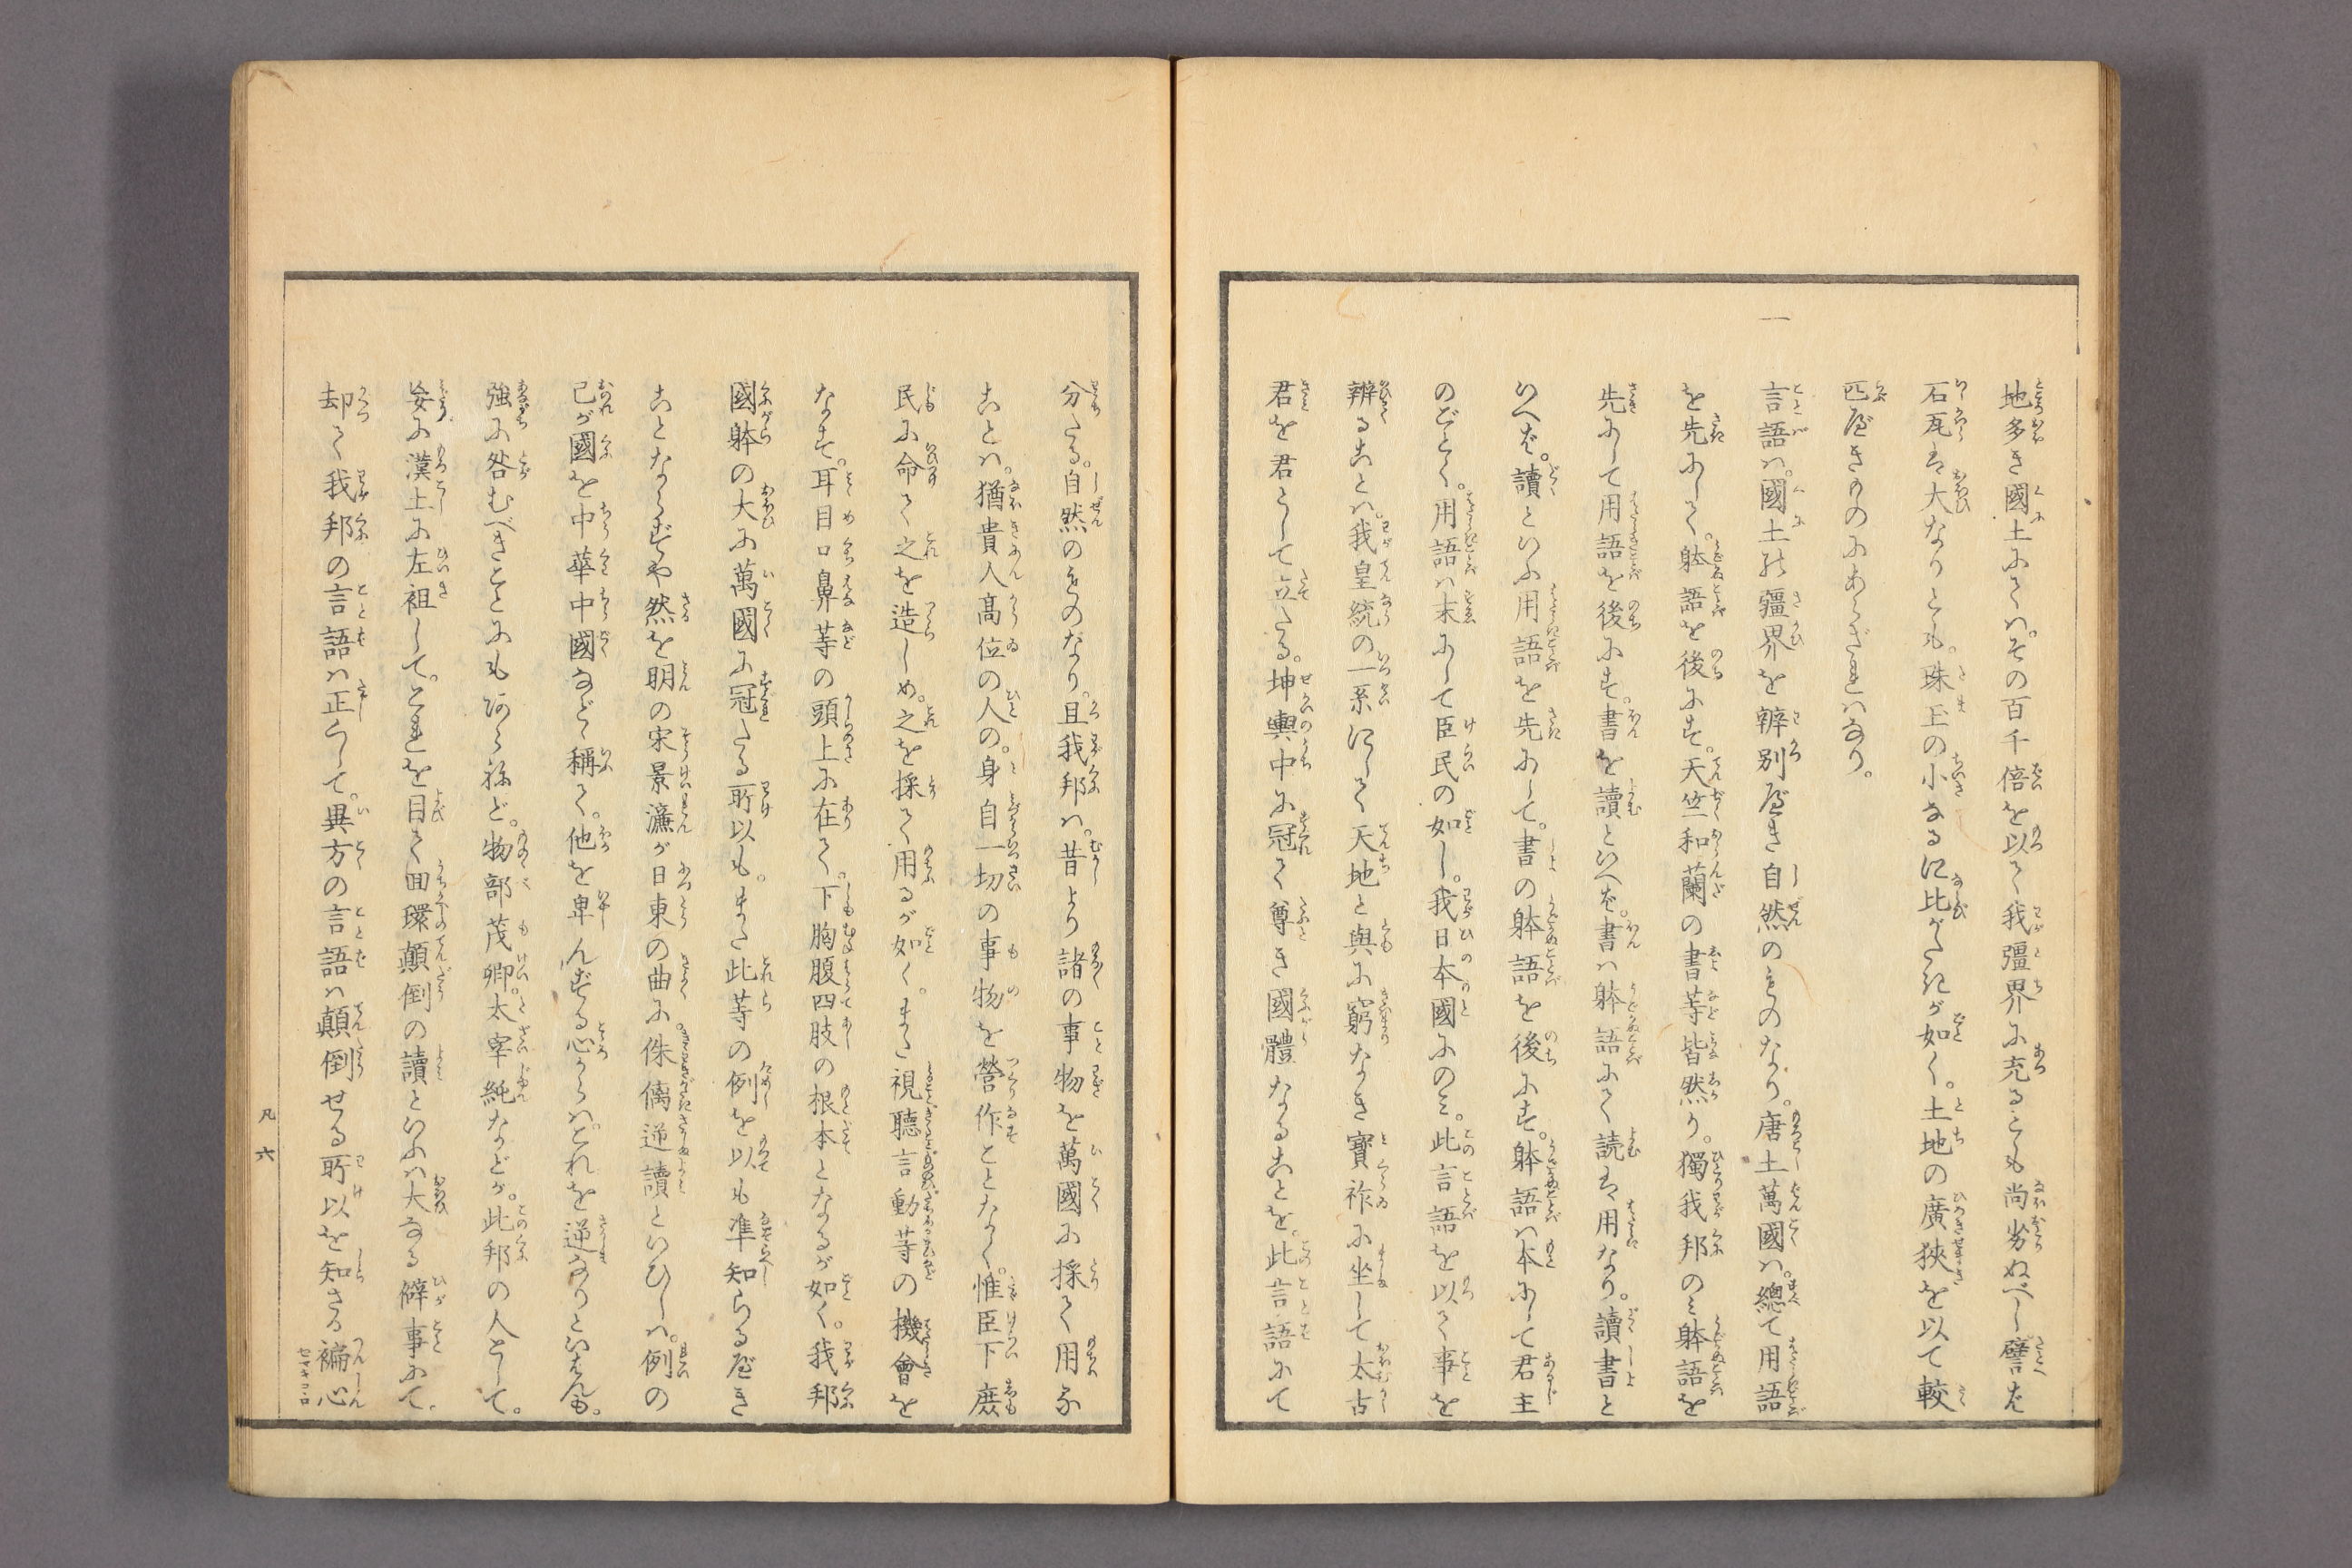 地多き國土にては。その百千倍を以て我彊界に充るとも尚劣ぬべし譬ば
石瓦は大なりとも。珠玉の小なるに比がたきが如く。土地の廣狹を以て較
匹べきものにあらざればなり。
一 言語は。國土の疆界を辨別べき自然のものなり。唐土萬國は。總て用語
を先にして。躰語を後にす。天竺和蘭の書等皆然り。獨我邦のミ躰語を
先にして用語を後にす。書を讀といへば。書は躰語にて読は用なり。讀書と
いへば。讀といふ用語を先にして。書の躰語を後にす。躰語は本にして君主
のごとく。用語は末にして臣民の如し。我日本國にのミ。此言語を以て事を
辨ることは。我皇統の一系にして天地と與に窮なき寶祚に坐して太古
君を君として立たる。坤輿中に冠て尊き國體なることを。此言語にて
分たる。自然のものなり。且我邦は。昔より諸の事物を萬國に採て用な
ことは。猶貴人高位の人の。身自一切の事物を營作ことなく。惟臣下庶
民に命て之を造しめ。之を採て用るが如く。また視聽言動等の機會を
なす。耳目口鼻等の頭上に在て。下胸腹四肢の根本となるが如く。我邦
國躰の大に萬國に冠たる所以も。また此等の例を以も準知らるべき
ことならずや然を明の宋景濂が日東の曲に侏𠌯逆讀といひしは。例の
己が國を中華中國など稱て。他を卑んずる心からはこれを逆なりといはん歟。
強に咎むべきことにも阿らねど。物部茂卿。太宰純などが。此邦の人として。
妄に漢土に左袒して。これを目て囬環顛倒の讀といふは大なる僻事にて。
却て我邦の言語は正くして。異方の言語は顛倒せる所以を知さる褊心
セマキコヽロ
凡 六